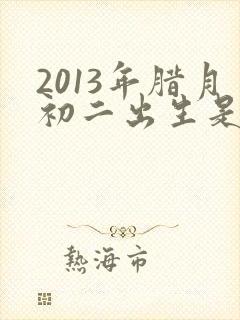 2013年腊月
初二出生是
熱海市